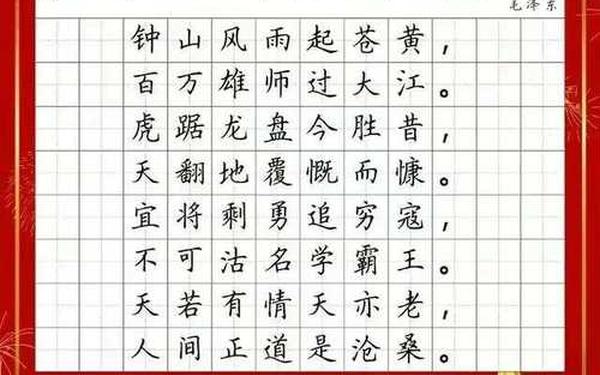 毛泽东
钟山风雨起苍黄，
百万雄师过大江。
虎踞龙盘今胜昔，
天翻地覆慨而慷。
宜将剩勇追穷寇，
不可沽名学霸王。
天若有情天亦老，
人间正道是沧桑。